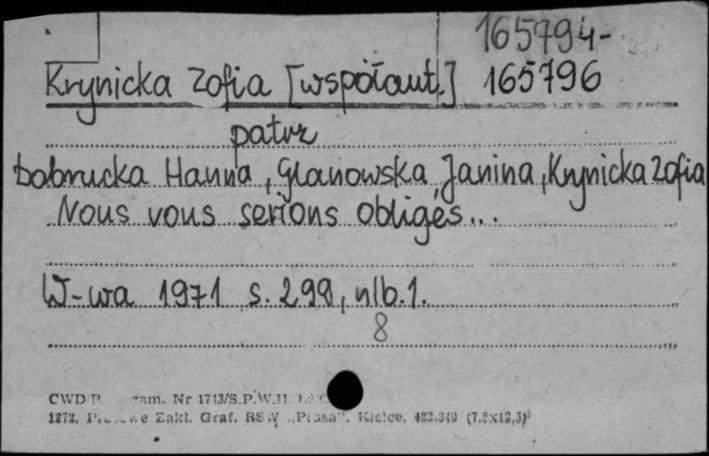 165794-
Krynicka Zofia [współaut.] 165796
patrz
Dobrucka Hanna, Glanowska Janina, Krynicka Zofia
Nous vous serions obligés...
W-wa 1971 s. 298, nlb. 1.
8
CWD zam. Nr 1713/S.P.W.H.
Zakł. Graf. RSW „Prasa”, Kielce, (7.5x12,5)